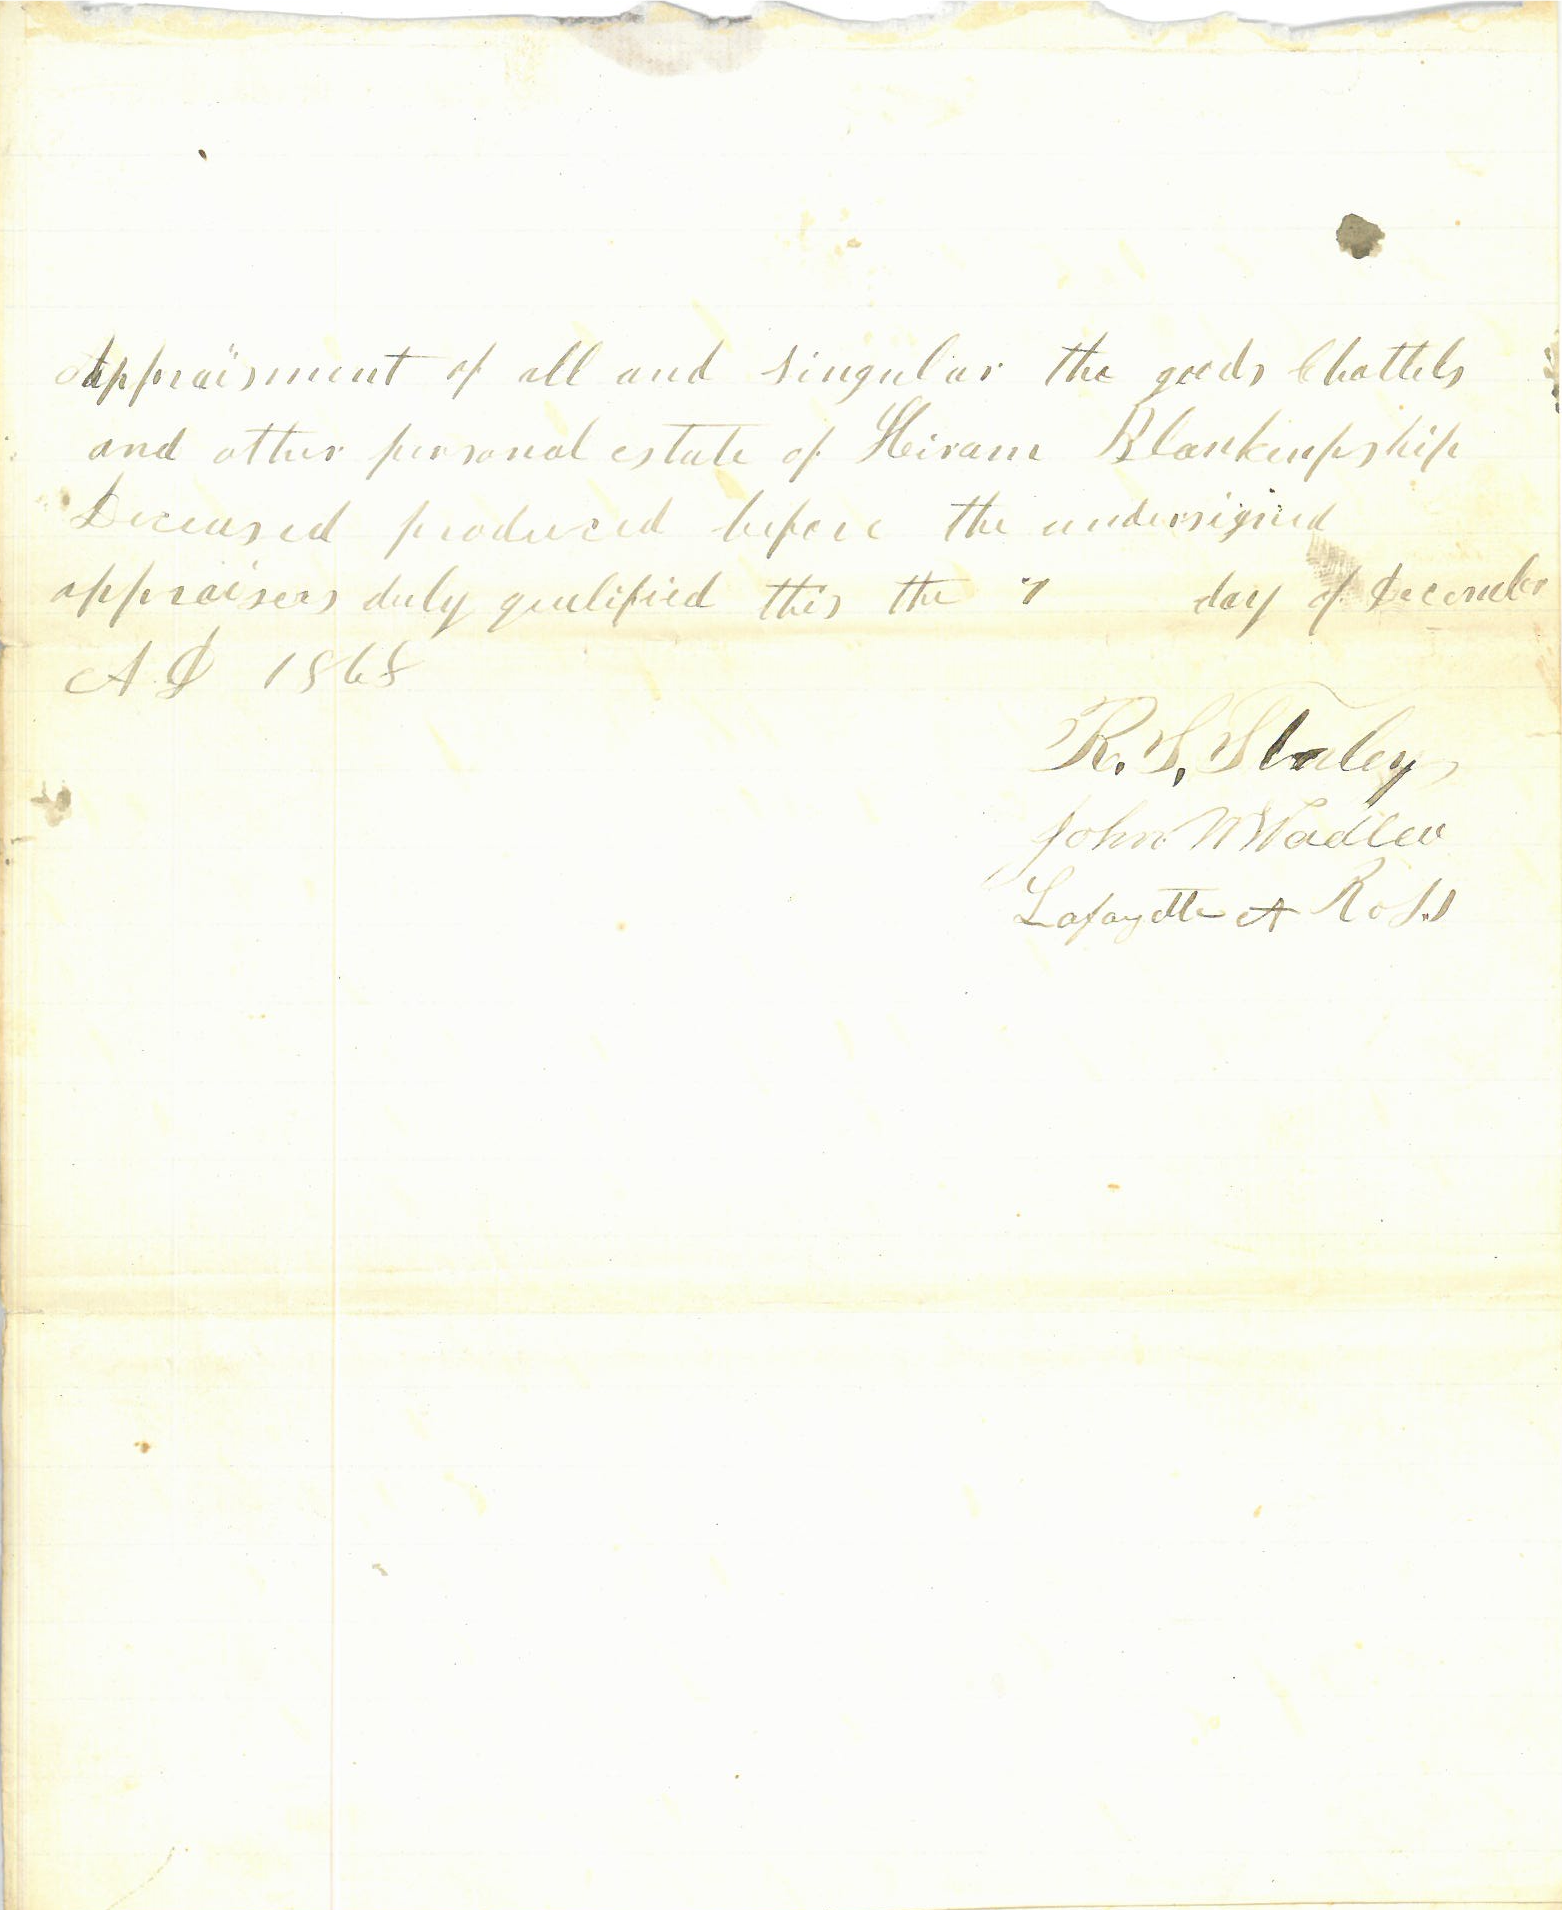 Appraisment of all and singular the goods Chattels
and other personal estate of Hiram Blankenpship
Deceased produced before the undersigned
appraisers duly qualified this the 7 day of December
A D 1868
R. S. Staley
John W
Lafayette A Ross